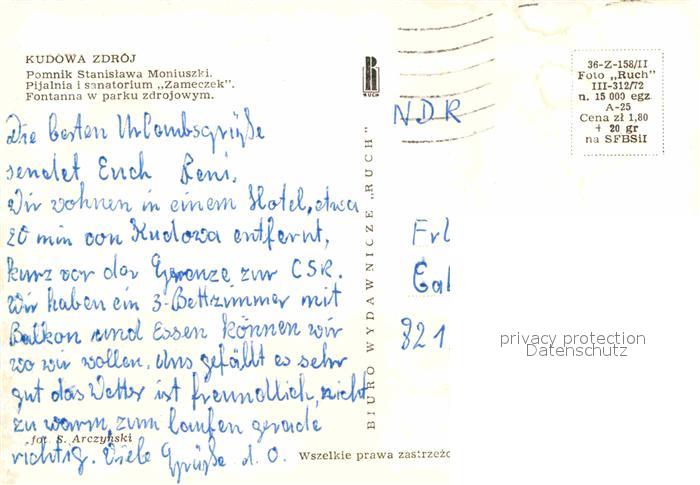 KUDOWA ZDRÓJ
Pomnik Stanisława Moniuszki.
Pijalnia i sanatorium „Zameczek".
Fontanna w parku zdrojowym.
Die besten Urlaubsgrüße
sendet Euch Reni.
Wir wohnen in einem Hotel, etwa
20 min von Kudowa entfernt,
kurz vor der Grenze zur CSR.
Wir haben ein 3-Bettzimmer mit
Balkon und Essen können wir
wo wir wollen. Uns gefällt es sehr
gut das Wetter ist freundlich, nicht
zu warm, zum laufen gerade
richtig. Viele Grüße d. O.
fot. S. Arczyński
BIURO WYDAWNICZE „RUCH"
RUCH
Wszelkie prawa zastrzeżo
36-Z-158/II
Foto „Ruch"
III-312/72
n. 15 000 egz.
A-25
Cena zł 1,80
+ 20 gr
na SFBSiI
NDR
Frl
821
privacy protection
Datenschutz